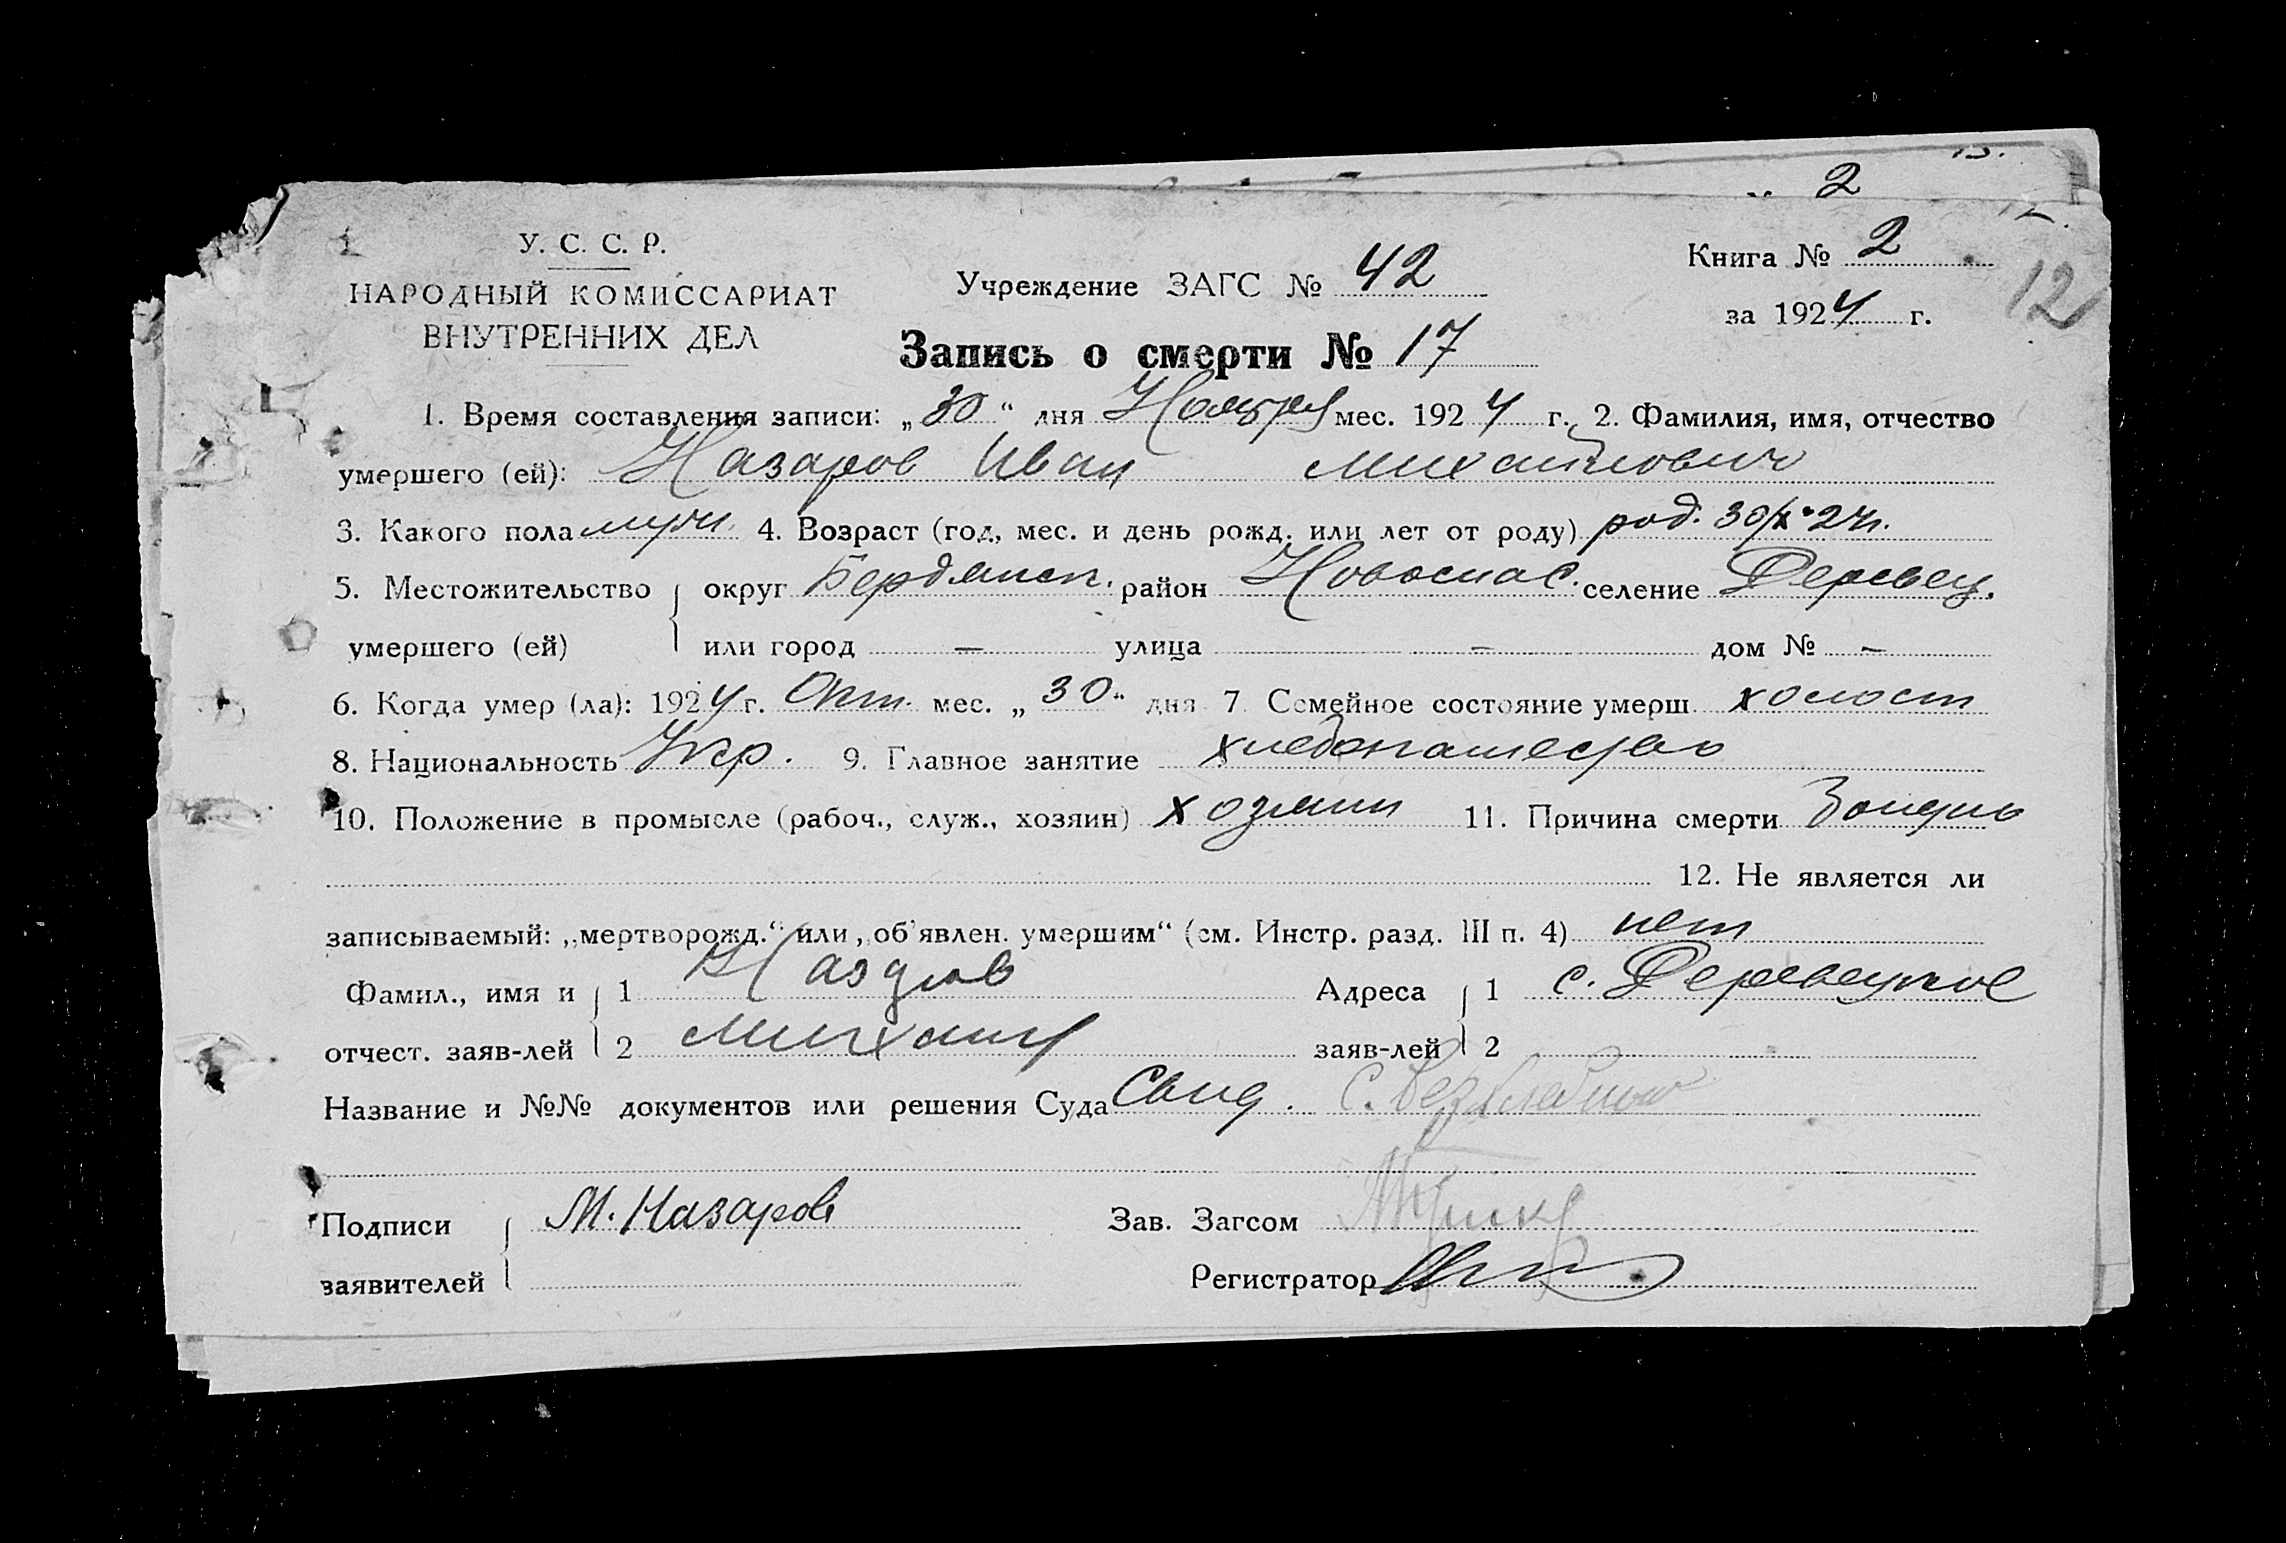 2
У. С. С. Р.
НАРОДНЫЙ КОМИССАРИАТ
ВНУТРЕННИХ ДЕЛ
Учреждение ЗАГС № 42
Книга № 2
12
за 1924 г.
Запись о смерти № 17
1. Время составления записи: „30“ дня Ноября мес. 1924 г. 2. Фамилия, имя, отчество
умершего (ей): Назаров Иван Михайлович
3. Какого пола муж. 4. Возраст (год, мес. и день рожд. или лет от роду) род. 30/X 24 г.
5. Местожительство округ Бердянск. район Новоспас. селение Деревец.
умершего (ей) или город — улица — дом № —
6. Когда умер (ла): 1924 г. Окт. мес. „30“ дня 7 Семейное состояние умерш. холост
8. Национальность Укр. 9. Главное занятие хлебопашество
10. Положение в промысле (рабоч., служ., хозяин) хозяин 11. Причина смерти
12. Не является ли
записываемый: „мертворожд.“ или „об'явлен. умершим“ (см. Инстр. разд. III п. 4) нет
Фамил., имя и 1 Адреса 1 с. Деревецкое
отчест. заяв-лей 2 Михаил заяв-лей 2
Название и №№ документов или решения Суда
Подписи М. Назаров Зав. Загсом
заявителей Регистратор